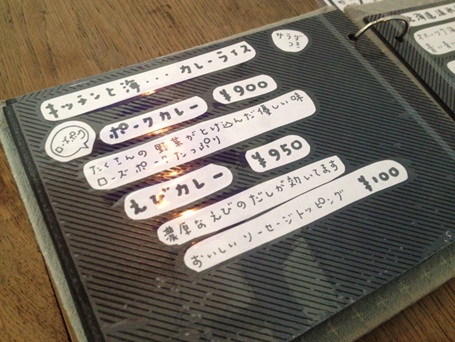 キッチンと海... カレーライス
サラダつき
ローズポーク
ポークカレー ¥900
たくさんの野菜がとけ込んだ優しい味
ローズポークたっぷり
えびカレー ¥950
濃厚なえびのだしが効いてます
おいしいソーセージトッピング ¥100
北海道